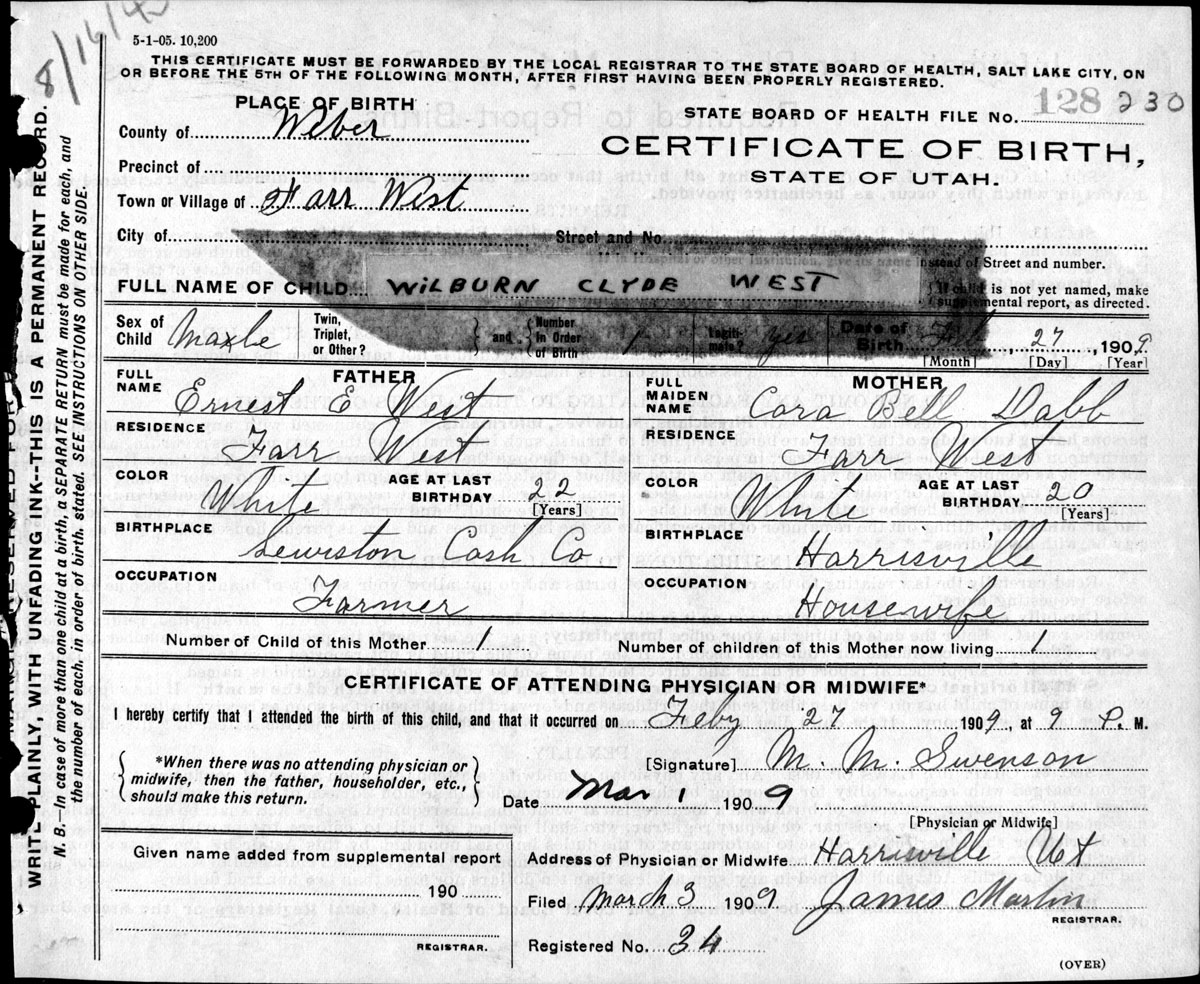 8/16/43
5-1-05. 10,200
THIS CERTIFICATE MUST BE FORWARDED BY THE LOCAL REGISTRAR TO THE STATE BOARD OF HEALTH, SALT LAKE CITY, ON
OR BEFORE THE 5TH OF THE FOLLOWING MONTH, AFTER FIRST HAVING BEEN PROPERLY REGISTERED.
PLACE OF BIRTH
STATE BOARD OF HEALTH FILE No. 128 230
County of Weber
CERTIFICATE OF BIRTH,
STATE OF UTAH.
Precinct of
Town or Village of Farr West
City of Street and No.
instead of Street and number.
FULL NAME OF CHILD WILBURN CLYDE WEST
{If child is not yet named, make
supplemental report, as directed.
Sex of Child Maxle Twin, Triplet, or Other? } and { Number in Order of Birth 1 Legiti- mate? yes Date of Birth 27, 1909
[Month] [Day] [Year]
FATHER MOTHER
FULL NAME Ernest E West FULL MAIDEN NAME Cora Bell Dabb
RESIDENCE Farr West RESIDENCE Farr West
COLOR White AGE AT LAST BIRTHDAY 22 [Years] COLOR White AGE AT LAST BIRTHDAY 20 [Years]
BIRTHPLACE Lewiston Cash Co BIRTHPLACE Harrisville
OCCUPATION Farmer OCCUPATION Housewife
Number of Child of this Mother 1 Number of children of this Mother now living 1
CERTIFICATE OF ATTENDING PHYSICIAN OR MIDWIFE*
I hereby certify that I attended the birth of this child, and that it occurred on Feby 27 1909, at 9 P. M.
{ *When there was no attending physician or midwife, then the father, householder, etc., should make this return. }
[Signature] M. M. Swenson
Date Mar 1 1909
[Physician or Midwife]
Given name added from supplemental report
190
REGISTRAR.
Address of Physician or Midwife Harrisville Ut
Filed March 3 1909 James Martin
REGISTRAR.
Registered No. 34
(OVER)
WRITE PLAINLY, WITH UNFADING INK--THIS IS A PERMANENT RECORD.
N. B.—In case of more than one child at a birth, a SEPARATE RETURN must be made for each, and
the number of each, in order of birth, stated. SEE INSTRUCTIONS ON OTHER SIDE.